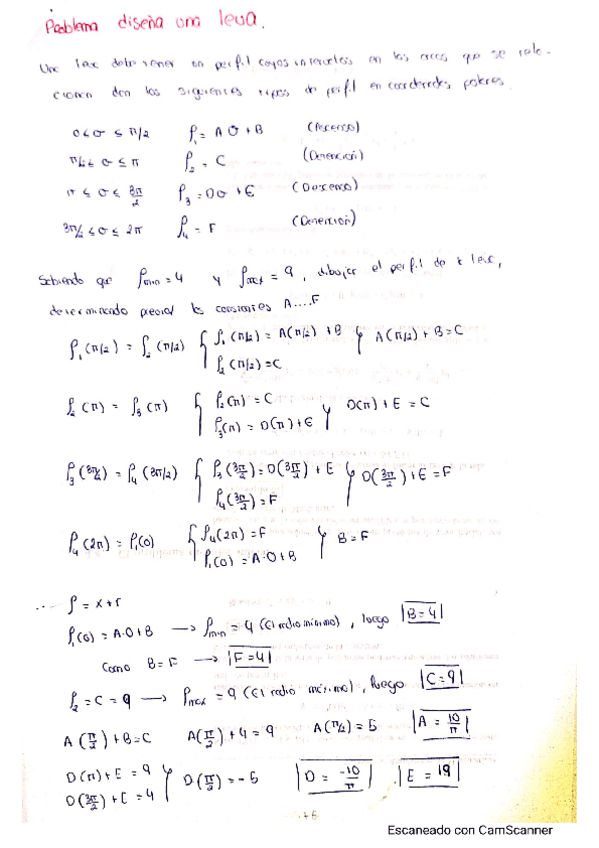 Problema diseña una leva.
Una leva debe tener un perfil cuyos intervalos en los arcos que se rela-
cionan con los siguientes tipos de perfil en coordenadas polares
0 < σ ≤ π/2 ρ₁ = A σ + B (Ascenso)
π/2 < σ ≤ π ρ₂ = C (Detención)
π ≤ σ ≤ 3π/2 ρ₃ = Dσ + E (Descenso)
3π/2 ≤ σ ≤ 2π ρ₄ = F (Detención)
Sabiendo que ρmin = 4 y ρmax = 9, dibujar el perfil de la leva,
determinando las constantes A....F
ρ₁(π/2) = ρ₂(π/2) { ρ₁(π/2) = A(π/2) + B } A(π/2) + B = C
ρ₂(π/2) = C
ρ₂(π) = ρ₃(π) { ρ₂(π) = C } D(π) + E = C
ρ₃(π) = D(π) + E
ρ₃(3π/2) = ρ₄(3π/2) { ρ₃(3π/2) = D(3π/2) + E } D(3π/2) + E = F
ρ₄(3π/2) = F
ρ₄(2π) = ρ₁(0) { ρ₄(2π) = F } B = F
ρ₁(0) = A·0 + B
ρ = x + r
ρ₁(0) = A·0 + B → ρmin = 4 (El radio mínimo), luego |B = 4|
Como B = F → |F = 4|
ρ₂ = C = 9 → ρmax = 9 (El radio máximo), luego |C = 9|
A(π/2) + B = C A(π/2) + 4 = 9 A(π/2) = 5 |A = 10/π|
D(π) + E = 9 } D(π/2) = -5 |D = -10/π| |E = 19|
D(3π/2) + E = 4
Escaneado con CamScanner